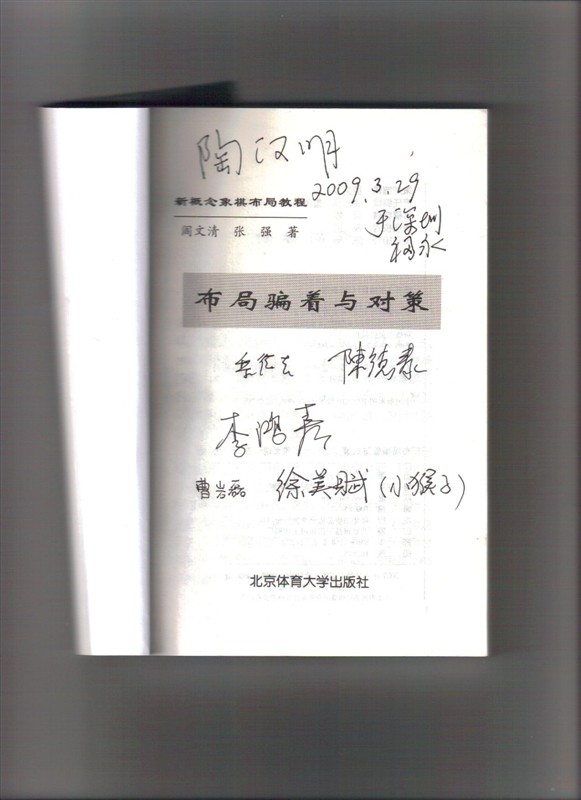 陶汉明
2009.3.29
新概念象棋布局教程
于深圳
阎文清 张 强 著
福永
布局骗着与对策
陳德泰
李鸿嘉
曹岩磊 徐美赋(小猴子)
北京体育大学出版社